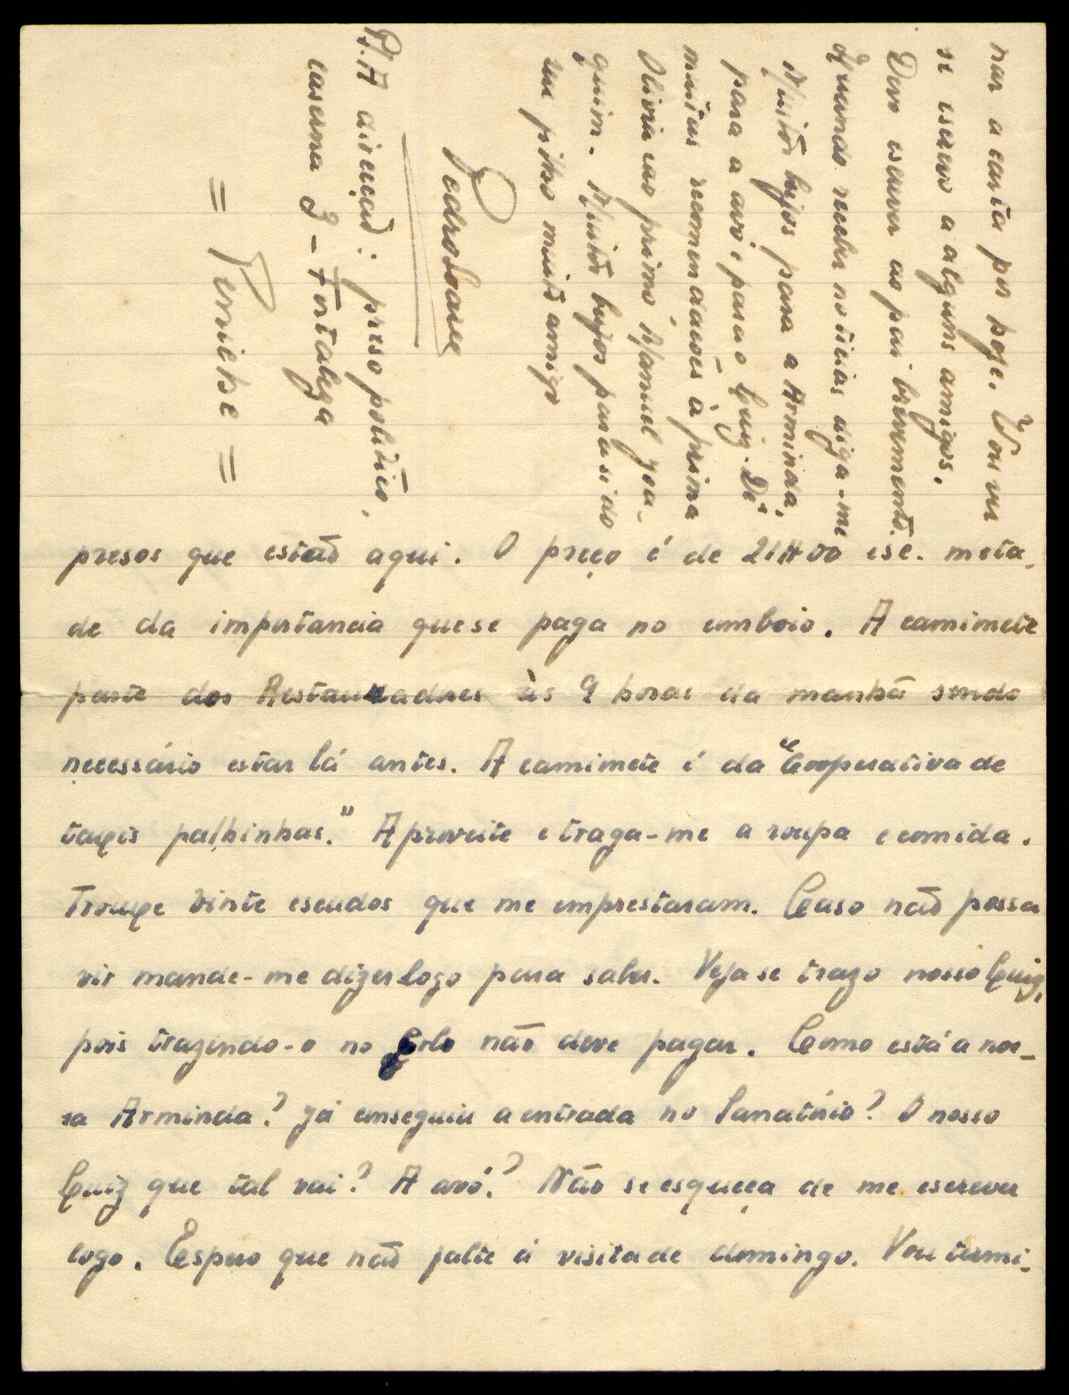 presos que estão aqui. O preço é de 21$00 esc. meta-
de da importancia que se paga no comboio. A camionete
parte dos Restauradores às 9 horas da manhã sendo
necessário estar lá antes. A camionete é da "Cooperativa de
taxis palhinhas." Aproveite e traga-me a roupa e comida.
Trouxe vinte escudos que me emprestaram. Caso não possa
vir mande-me dizer logo para saber. Veja se traz o nosso Luiz,
pois trazendo-o no colo não deve pagar. Como está a nos-
sa Arminda? Já conseguiu a entrada no Sanatório? O nosso
Luiz que tal vai? A avó? Não se esqueça de me escrever
logo. Espero que não falte à visita de domingo. Vou termi-
nar a carta por hoje. Vou ver
se escrevo a alguns amigos.
Devo escrever ao pai brevemente.
Quando receber noticias diga-me
Muitos beijos para a Arminda,
para a avó, para o Luiz. Dê
muitas recomendações à prima
Olivia ao primo Manuel Joa-
quim. Muitos beijos para si do
seu filho muito amigo
Pedro Soares
P.S. A direcção: preso politico,
caserna 3 - Fortaleza
= Peniche =